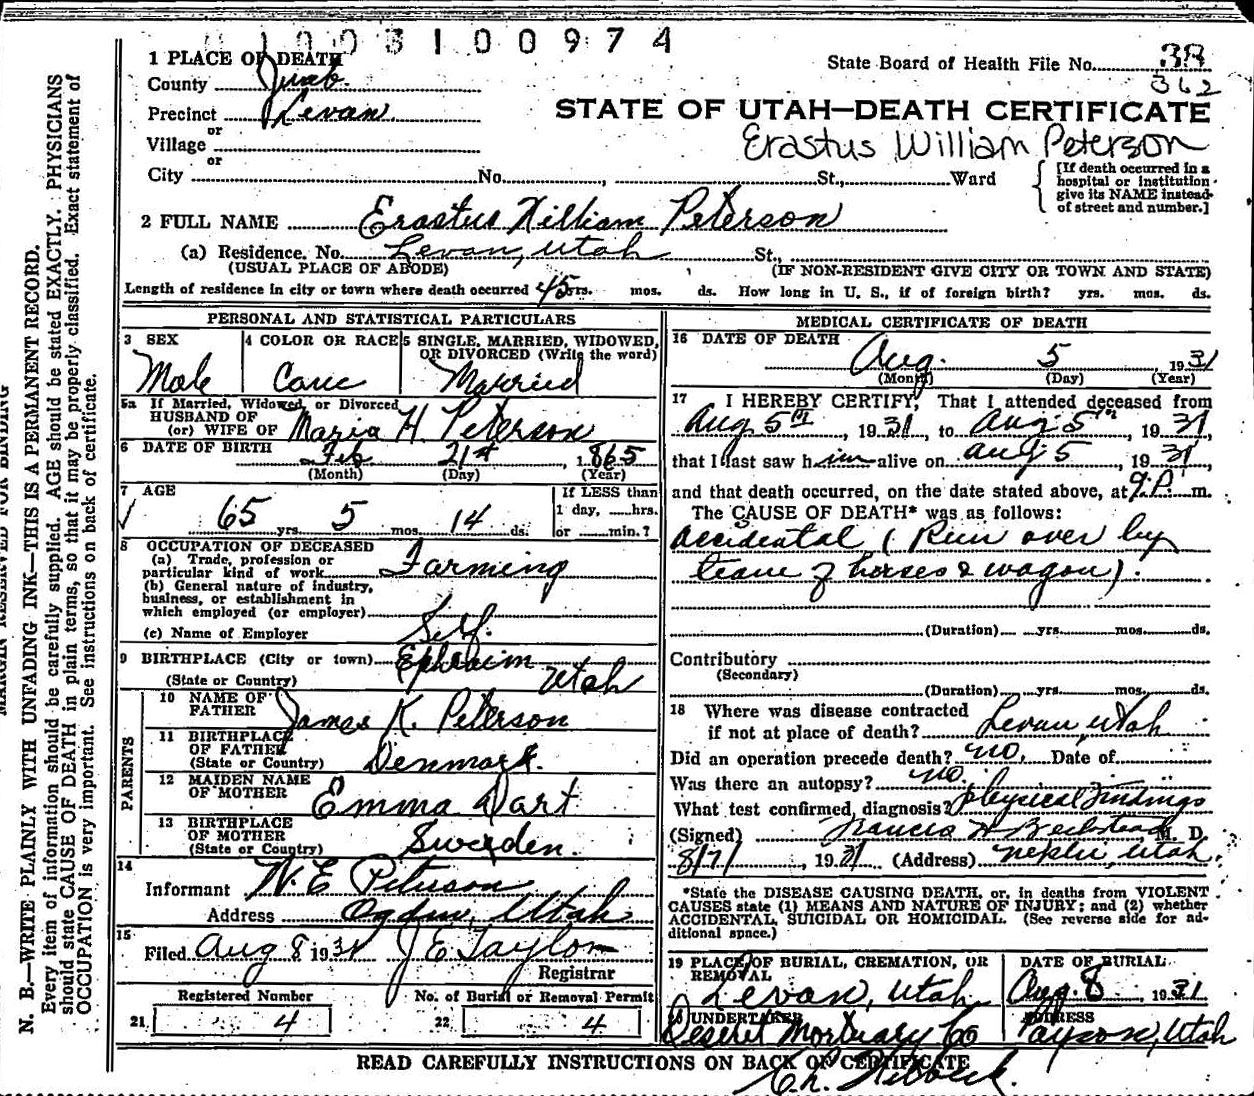 1003100974
1 PLACE OF DEATH
State Board of Health File No. 38
362
County Juab
Precinct Levan
or
Village
or
City No. , St., Ward
STATE OF UTAH—DEATH CERTIFICATE
Erastus William Peterson
[If death occurred in a
hospital or institution
give its NAME instead
of street and number.]
2 FULL NAME Erastus William Peterson
(a) Residence. No. Levan, Utah St.,
(USUAL PLACE OF ABODE) (IF NON-RESIDENT GIVE CITY OR TOWN AND STATE)
Length of residence in city or town where death occurred 45 yrs. mos. ds. How long in U. S., if of foreign birth? yrs. mos. ds.
PERSONAL AND STATISTICAL PARTICULARS
3 SEX
Male
4 COLOR OR RACE
Cauc
5 SINGLE, MARRIED, WIDOWED,
OR DIVORCED (Write the word)
Married
5a If Married, Widowed, or Divorced
HUSBAND OF
(or) WIFE OF Maria H. Peterson
6 DATE OF BIRTH Feb 21st, 1865
(Month) (Day) (Year)
7 AGE
65 yrs. 5 mos. 14 ds.
If LESS than
1 day, hrs.
or min.?
8 OCCUPATION OF DECEASED
(a) Trade, profession or
particular kind of work Farming
(b) General nature of industry,
business, or establishment in
which employed (or employer)
(c) Name of Employer Self.
9 BIRTHPLACE (City or town) Ephraim
(State or Country) Utah
PARENTS
10 NAME OF
FATHER James K. Peterson
11 BIRTHPLACE
OF FATHER
(State or Country) Denmark.
12 MAIDEN NAME
OF MOTHER Emma Dart
13 BIRTHPLACE
OF MOTHER
(State or Country) Sweden.
14
Informant W. E. Peterson
Address Ogden, Utah
15
Filed Aug 8 1931 J E Taylor
Registrar
Registered Number
21 4
No. of Burial or Removal Permit
22 4
MEDICAL CERTIFICATE OF DEATH
16 DATE OF DEATH
Aug. 5 1931
(Month) (Day) (Year)
17 I HEREBY CERTIFY, That I attended deceased from
Aug 5th, 1931, to Aug 5th, 1931,
that I last saw him alive on Aug 5, 1931,
and that death occurred, on the date stated above, at 9 P. m.
The CAUSE OF DEATH* was as follows:
Accidental (Run over by
team of horses & wagon).
(Duration) yrs. mos. ds.
Contributory
(Secondary)
(Duration) yrs. mos. ds.
18 Where was disease contracted
if not at place of death? Levan, Utah
Did an operation precede death? no. Date of
Was there an autopsy? no.
What test confirmed diagnosis? Physical Findings
(Signed) Francis M. D.
8/7/, 1931 (Address) Nephi, Utah.
*State the DISEASE CAUSING DEATH, or, in deaths from VIOLENT
CAUSES state (1) MEANS AND NATURE OF INJURY; and (2) whether
ACCIDENTAL, SUICIDAL OR HOMICIDAL. (See reverse side for ad-
ditional space.)
19 PLACE OF BURIAL, CREMATION, OR
REMOVAL
Levan, Utah
DATE OF BURIAL
Aug. 8, 1931
UNDERTAKER
Deseret Mortuary Co
ADDRESS
Payson, Utah
READ CAREFULLY INSTRUCTIONS ON BACK OF CERTIFICATE
MARGIN RESERVED FOR BINDING
N. B.—WRITE PLAINLY WITH UNFADING INK—THIS IS A PERMANENT RECORD.
Every item of information should be carefully supplied. AGE should be stated EXACTLY. PHYSICIANS
should state CAUSE OF DEATH in plain terms, so that it may be properly classified. Exact statement of
OCCUPATION is very important. See instructions on back of certificate.